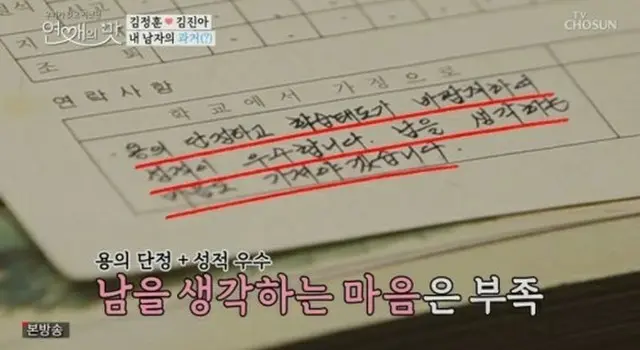 연애의 맛
김정훈 ♥ 김진아
내 남자의 과거(?)
TV CHOSUN
지
조 퇴
연락사항
학교에서 가정으로
용의 단정하고 학습태도가 바람직하여
성적이 우수합니다. 남을 생각하는
마음도 가져야 갰습니다.
용의 단정 + 성적 우수
남을 생각하는 마음은 부족
본방송